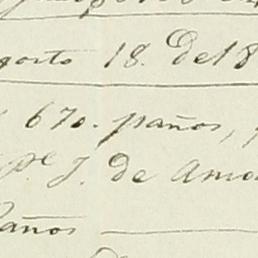 agosto 18. del 18
670. paños,
pe J. de Amo
Paños